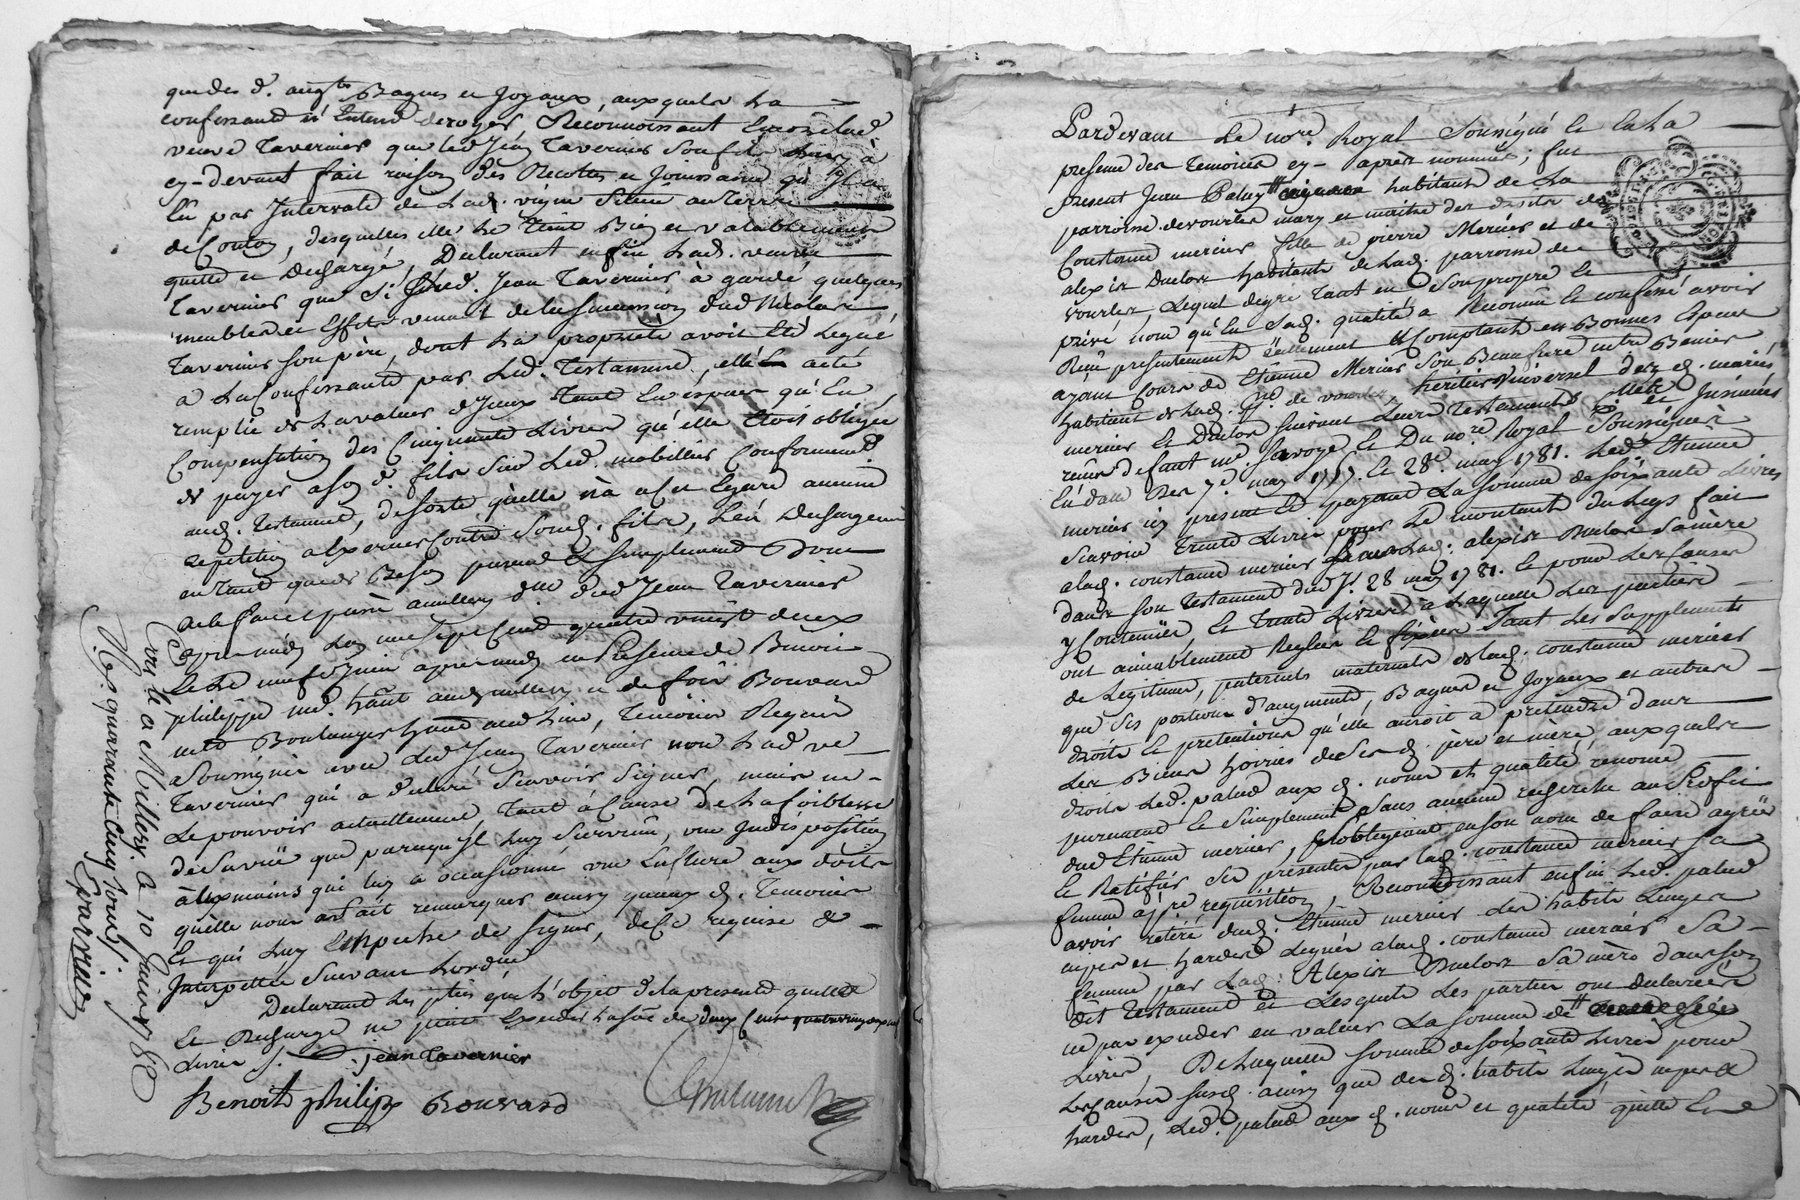 que des d. augts Bagues et Joyaux, auxquels La
confessante n'Entend deroger Reconnoissant Encore lad.
veuve Tavernier que led Jean Tavernier son fils Luy à
cy-devant fait raison des Recottes et Jouissance qu'Il a
Eu par Intervale de Lad. vigne Située au Terre
de Coulon, desquelles elle Le Tient Bien et valablement
quitte et Decharge, Declarant enfin Lad. veuve
Tavernier que Si led. Jean Tavernier à gardé quelques
meubles et Effets venant de la Succession dud Nicolas
Tavernier son père, dont La propriété avoit Eté Leguée
à La Confessante par Led. Testament, elle a été
remplie de La valeur d'yeux Tant En espèces qu'En
Compensation des Cinquante Livres qu'elle Etoit obligée
de payer a son d. fils Sur Led. mobilier Conformemt.
aud. Testament, de sorte qu'elle n'a a cet Egard aucune
repetition a Exercer Contre Sond. fils, L'en Dechargeant
en Tant que de Besoin purement et Simplement Dont
acte fait et passé a millery dud Jean Tavernier
après midy L'an mil Sept Cent quatre vingt deux
Et Le neuf Juin après midy en Presence de Benoit
philippe md. hant aud millery et de
md Boulanger hant aud Lieu, Temoins Requis
et Soussignés avec Led Jean Tavernier non Lad ve
Tavernier qui a declaré Scavoir Signer, mais ne
Le pouvoir actuellement, Tant à Cause de La foiblesse
de Sa vüe que parcequ'Il Luy Survenu, une Indisposition
à ses mains qui luy a occasionné une Enflure aux doits
qu'elle nous a fait remarquer ainsy quaux d. Temoins
Et qui Luy Empeche de Signer, de Ce requise et
Interpellée Suivant L'ordce
Declarant Les parties que L'objet de la presente quittce
Et Decharge ne peut Exceder La Soe de deux Cent
Livres ./. jean tavernier
Benoit philipe Bouvard
Cont. a Millery. Le 10 Juin 1782
R. quarante Cinq Sous
Pardevant Le nore. Royal Soussigné et En La
presence des Temoins cy-après nommés; fut
present Jean Palud habitant de La
parroisse de vourles mary et maitre des droits de
Constance mercier fille de pierre Mercier et de
alexis Duclos habitants de Lad. parroisse de
vourles, Lequel degré Tant en Son propre et
privé nom qu'En Sad. qualité a Reconnu et confessé avoir
Reçu presentement réellement et Comptant en Bonnes Especes
ayant Cours de Etienne Mercier Son Beaufrere
habitant de Lad. psse. de vourles heritier Universel desd. d. mariés
mercier et Duclos Suivant Leurs Testaments
reçus défunt me Savoye Et Du nore. Royal Soussigné
En datte Des 7e. may Et 28e. may 1781. Led. Etienne
mercier icy present Et payant La Somme de Soixante Livres
Scavoir Trente Livres pour Le montant du Legs fait
alad. constance mercier par Lad. alexis Duclos Sa mère
dans Son Testament dud Jr. 28 may 1781. Et pour Les Causes
y Contenües, Et Trente Livres à Laquelle Les parties
ont amiablement Reglée Et fixée Tant Les Supplements
de Legitime, paternels maternels de Lad. constance mercier
que Ses portions d'augment, Bagues et Joyaux et autres
droits et pretentions qu'elle auroit à prétendre dans
Les Biens hoiries de Ses d. père et mère, auxquels
droits Led. palud aux d. noms et qualité, renonce
purement Et Simplement Sans aucune recherche au Profit
dud Etienne mercier, S'obligeant en son nom de faire agréer
Et Ratifier Ses presentes par Lad. constance mercier Sa
femme a pre requisition, Reconnoissant enfin Led. palud
avoir retiré dud. Etienne mercier Les habits Linges
nipes et hardes Legués a lad. constance mercier Sa
femme par Lad. Alexis Duclos Sa mère dans Son
dit Testament et Lesquels Les parties ont declarées
ne pas exceder en valeur La Somme de
Livres, De Laquelle Somme de Soixante Livres pour
Les Causes Susd. ainsy que des d. habits Linges nipes et
hardes, Led. palud aux d. noms et qualité quitte Et